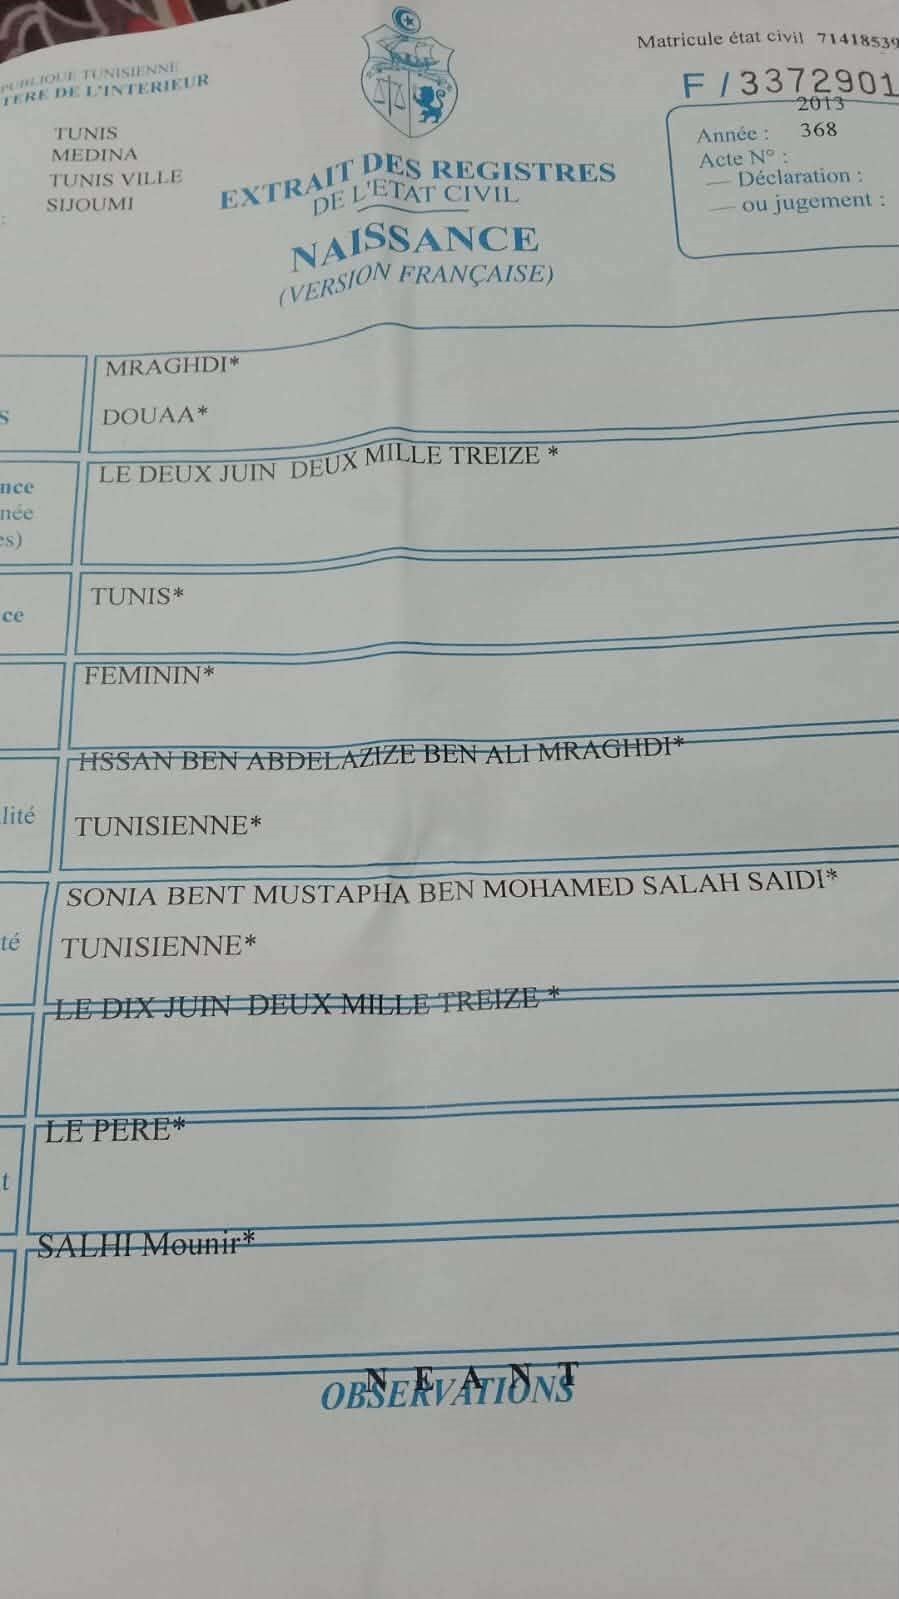 Matricule état civil 71418539
PUBLIQUE TUNISIENNE
TERE DE L'INTERIEUR
F / 3372901
2013
Année : 368
Acte N° :
— Déclaration :
— ou jugement :
TUNIS
MEDINA
TUNIS VILLE
SIJOUMI
:
EXTRAIT DES REGISTRES
DE L'ETAT CIVIL
NAISSANCE
(VERSION FRANÇAISE)
MRAGHDI*
s DOUAA*
LE DEUX JUIN DEUX MILLE TREIZE *
nce
née
es)
ce TUNIS*
FEMININ*
HSSAN BEN ABDELAZIZE BEN ALI MRAGHDI*
lité TUNISIENNE*
SONIA BENT MUSTAPHA BEN MOHAMED SALAH SAIDI*
té TUNISIENNE*
LE DIX JUIN DEUX MILLE TREIZE *
LE PERE*
t
SALHI Mounir*
N E A N T
OBSERVATIONS